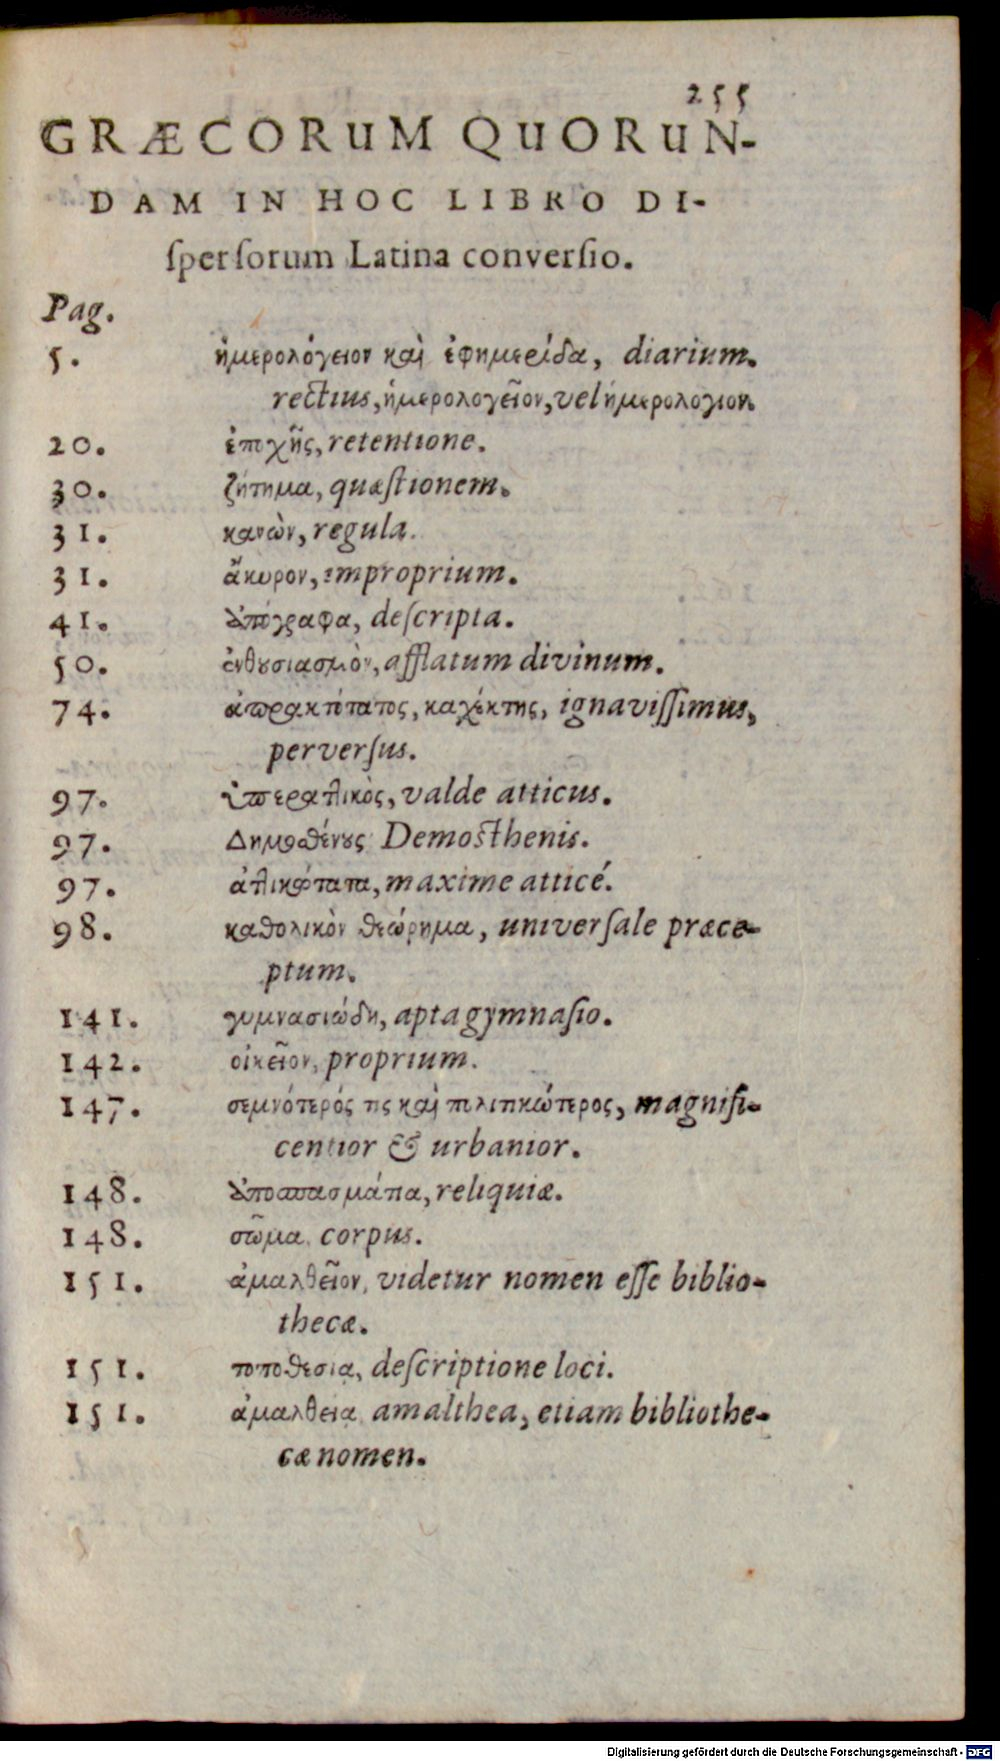 255
GRÆCORUM QUORUN-
DAM IN HOC LIBRO DI-
ſperſorum Latina converſio.
Pag.
5. ἡμερολόγειον καὶ ἐφημερίδα, diarium.
rectius, ἡμερολογεῖον, vel ἡμερολογιον.
20. ἐποχῆς, retentione.
30. ζήτημα, quæſtionem.
31. κανὼν, regula.
31. ἄκυρον, improprium.
41. ἀπόγραφα, deſcripta.
50. ἐνθουσιασμὸν, afflatum divinum.
74. ἀπρακτότατος, καχέκτης, ignaviſſimus,
perverſus.
97. ὑπεραττικὸς, valde atticus.
97. Δημοσθένους Demoſthenis.
97. ἀττικώτατα, maxime atticé.
98. καθολικὸν θεώρημα, univerſale præce-
ptum.
141. γυμνασιώδη, apta gymnaſio.
142. οἰκεῖον, proprium.
147. σεμνότερός τις καὶ πολιτικώτερος, magnifi-
centior & urbanior.
148. ἀποσπασμάτια, reliquiæ.
148. σῶμα corpus.
151. ἀμαλθεῖον, videtur nomen eſſe biblio-
thecæ.
151. τοποθεσια, deſcriptione loci.
151. ἀμαλθεια amalthea, etiam bibliothe-
cæ nomen.
Digitalisierung gefördert durch die Deutsche Forschungsgemeinschaft - DFG